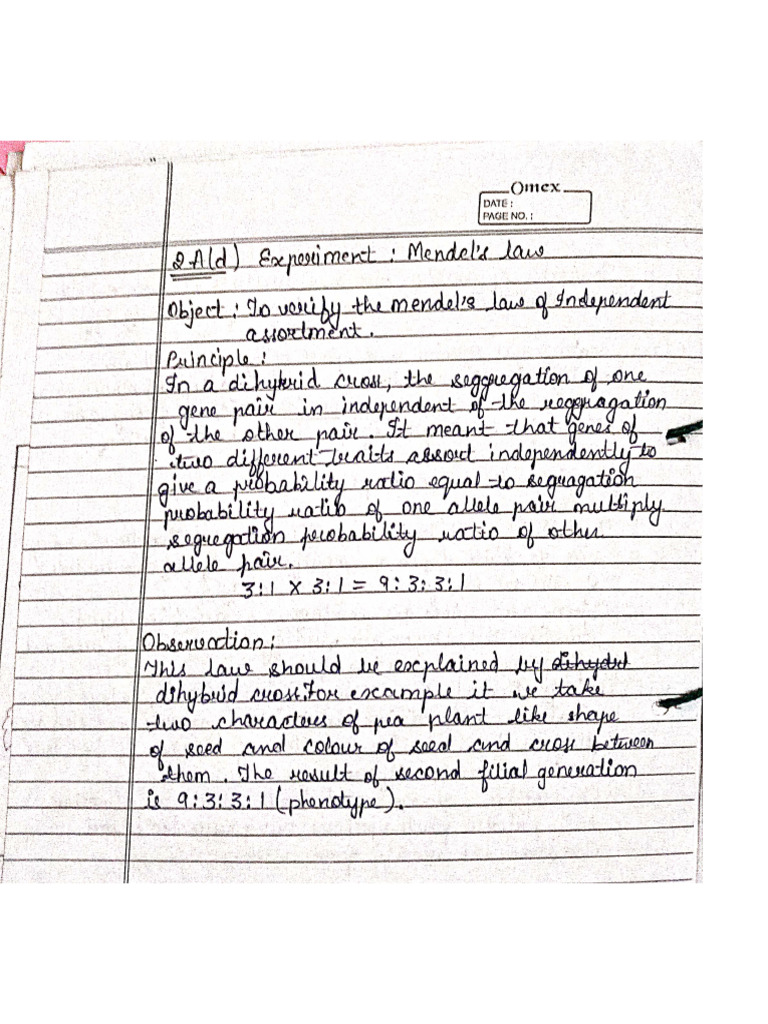 Omex
DATE :
PAGE NO. :
2A(d) Experiment : Mendel's law
Object : To verify the mendel's law of Independent
assortment.
Principle :
In a dihybrid cross, the seggregation of one
gene pair in independent of the reggragation
of the other pair. It meant that genes of
two different traits assort independently to
give a probability ratio equal to segragation
probability ratio of one allele pair multiply
segregation probability ratio of other
allele pair.
3:1 X 3:1 = 9:3:3:1
Observation :
This law should be explained by
dihybrid cross. For example it we take
two characters of pea plant like shape
of seed and colour of seed and cross between
them. The result of second filial generation
is 9:3:3:1 (phenotype).